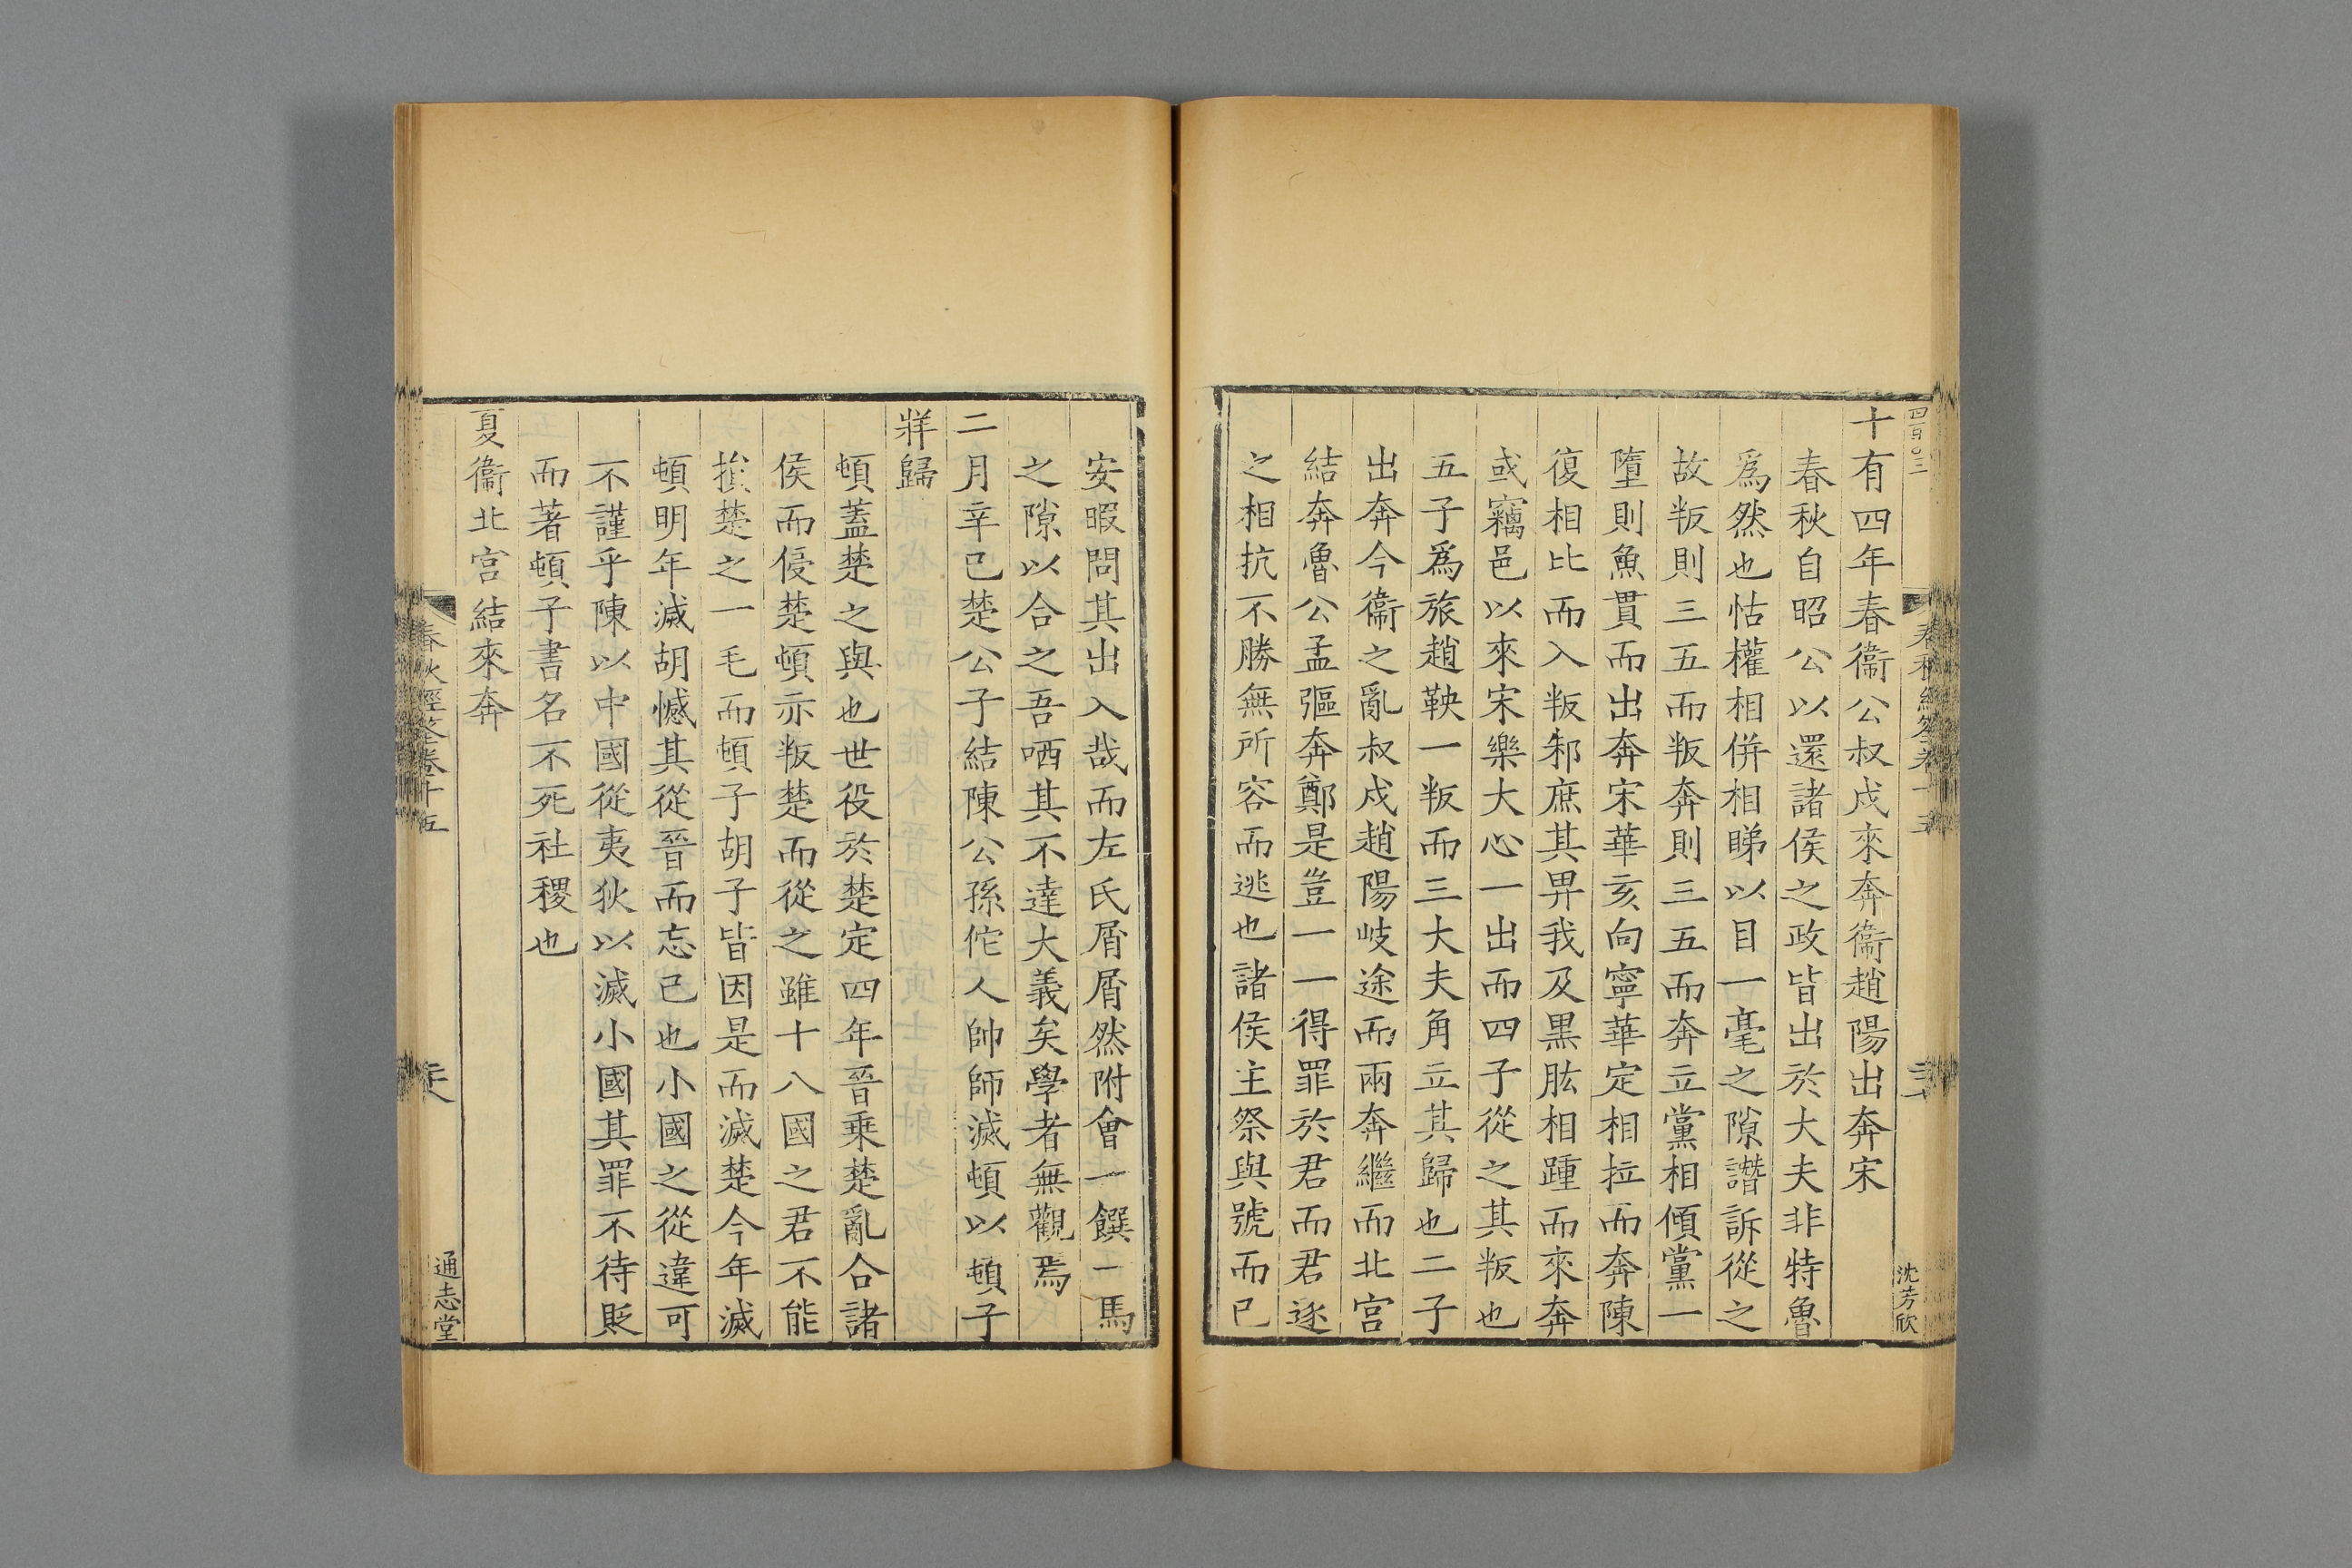 四百〇三
春秋經筌卷十五
沈芳欣
十有四年春衞公叔戍來奔衞趙陽出奔宋
春秋自昭公以還諸侯之政皆出於大夫非特魯
爲然也怙權相併相睇以目一毫之隙譖訴從之
故叛則三五而叛奔則三五而奔立黨相傾黨一
墮則魚貫而出奔宋華亥向寧華定相拉而奔陳
復相比而入叛邾庶其畀我及黑肱相踵而來奔
或竊邑以來宋樂大心一出而四子從之其叛也
五子爲旅趙鞅一叛而三大夫角立其歸也二子
出奔今衞之亂叔戍趙陽岐途而兩奔繼而北宮
結奔魯公孟彄奔鄭是豈一一得罪於君而君逐
之相抗不勝無所容而逃也諸侯主祭與號而已
安暇問其出入哉而左氏屑屑然附會一饌一馬
之隙以合之吾哂其不達大義矣學者無觀焉
二月辛巳楚公子結陳公孫佗人帥師滅頓以頓子
牂歸
頓蓋楚之與也世役於楚定四年晉乗楚亂合諸
侯而侵楚頓亦叛楚而從之雖十八國之君不能
損楚之一毛而頓子胡子皆因是而滅楚今年滅
頓明年滅胡憾其從晉而忘己也小國之從違可
不謹乎陳以中國從夷狄以滅小國其罪不待貶
而著頓子書名不死社稷也
夏衞北宮結來奔
春秋經筌卷十五
通志堂